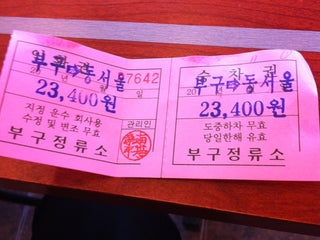 부구➩동서울
20 년 월 일
07642
23,400원
지정 운수 회사용
수정 및 변조 무효
관리인
부구정류소
승차권
부구➩동서울
20
23,400원
도중하차 무효
당일한해 유효
부구정류소